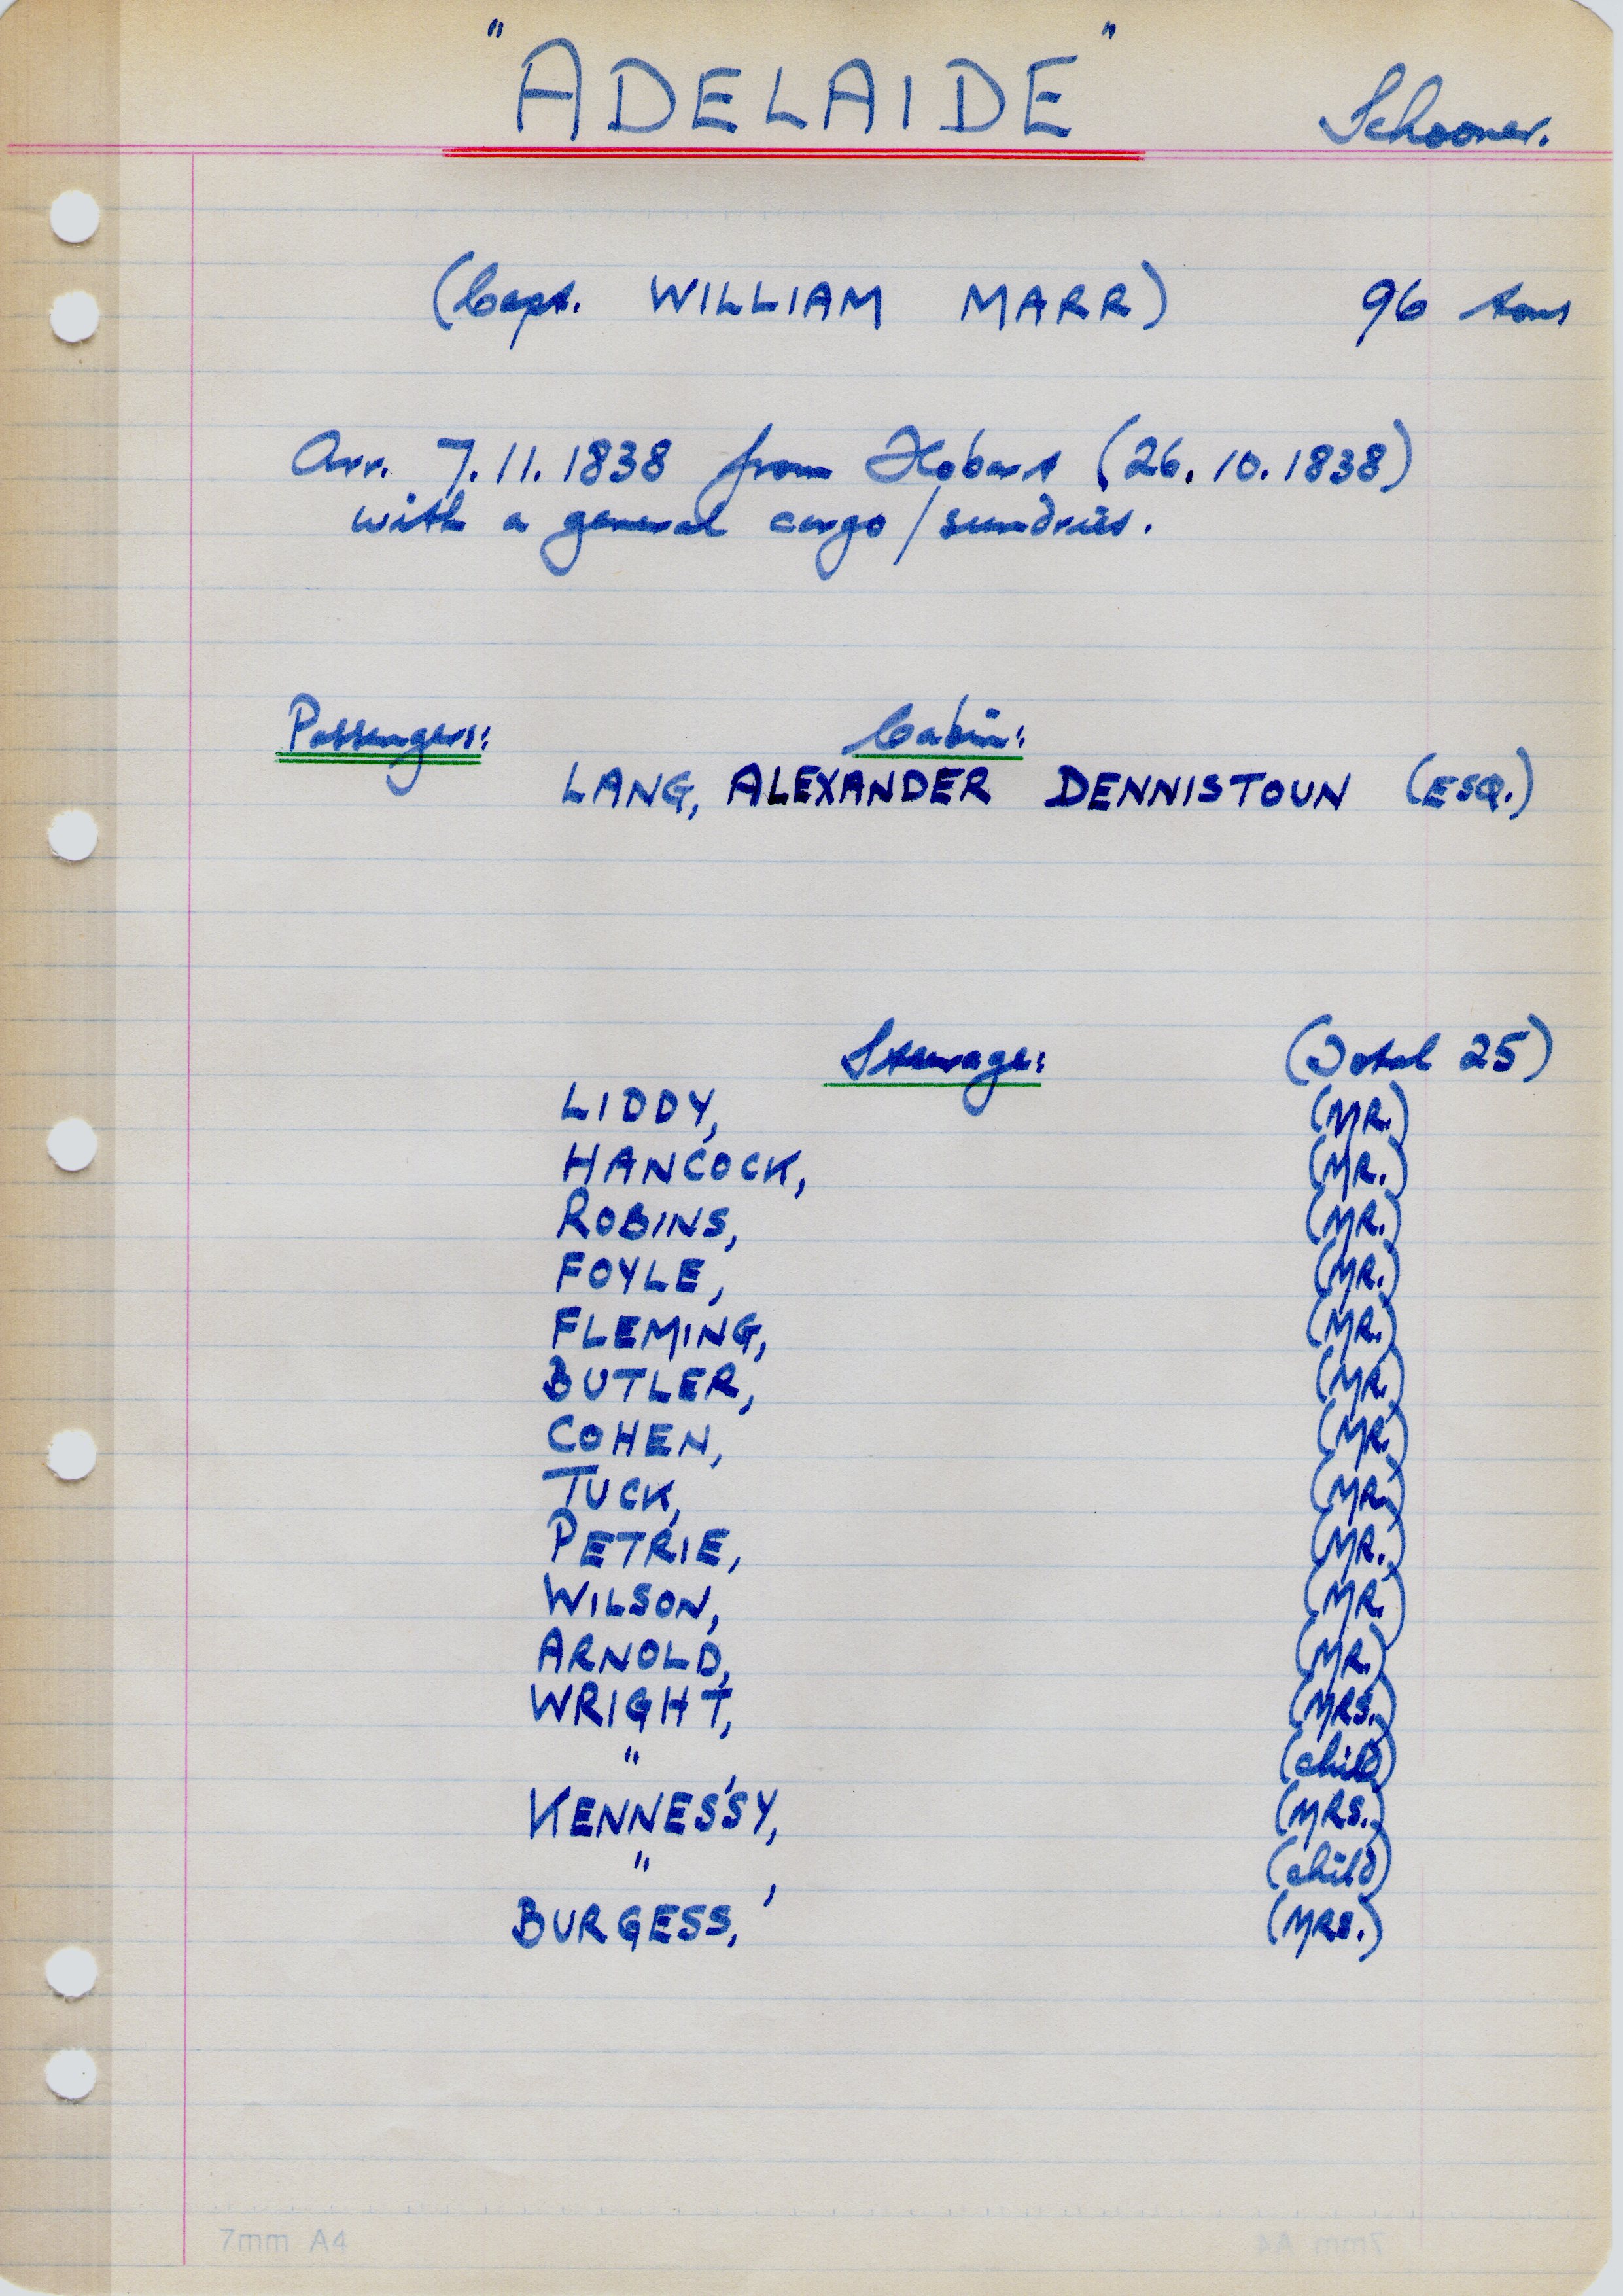 "ADELAIDE" Schooner.
(Capt. WILLIAM MARR) 96 tons
Arr. 7.11.1838 from Hobart (26.10.1838)
with a general cargo/sundries.
Passengers: Cabin:
LANG, ALEXANDER DENNISTOUN (ESQ.)
Steerage: (Total 25)
LIDDY, (MR.)
HANCOCK, (MR.)
ROBINS, (MR.)
FOYLE, (MR.)
FLEMING, (MR.)
BUTLER, (MR.)
COHEN, (MR.)
TUCK, (MR.)
PETRIE, (MR.)
WILSON, (MR.)
ARNOLD, (MR.)
WRIGHT, (MRS.)
" , (child)
KENNESSY, (MRS.)
" , (child)
BURGESS, (MRS.)
7mm A4